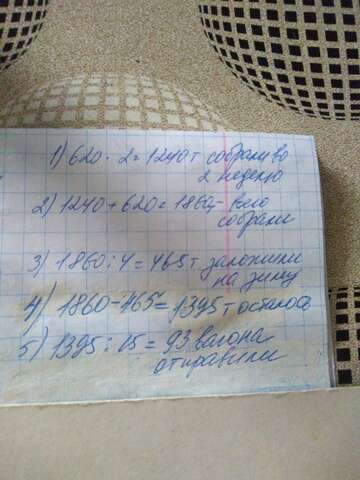 1) 620 · 2 = 1240 т собрали во
2 неделю
2) 1240 + 620 = 1860т всего
собрали
3) 1860 : 4 = 465 т заложили
на зиму
4) 1860 - 465 = 1395 т осталось
5) 1395 : 15 = 93 вагона
отправили